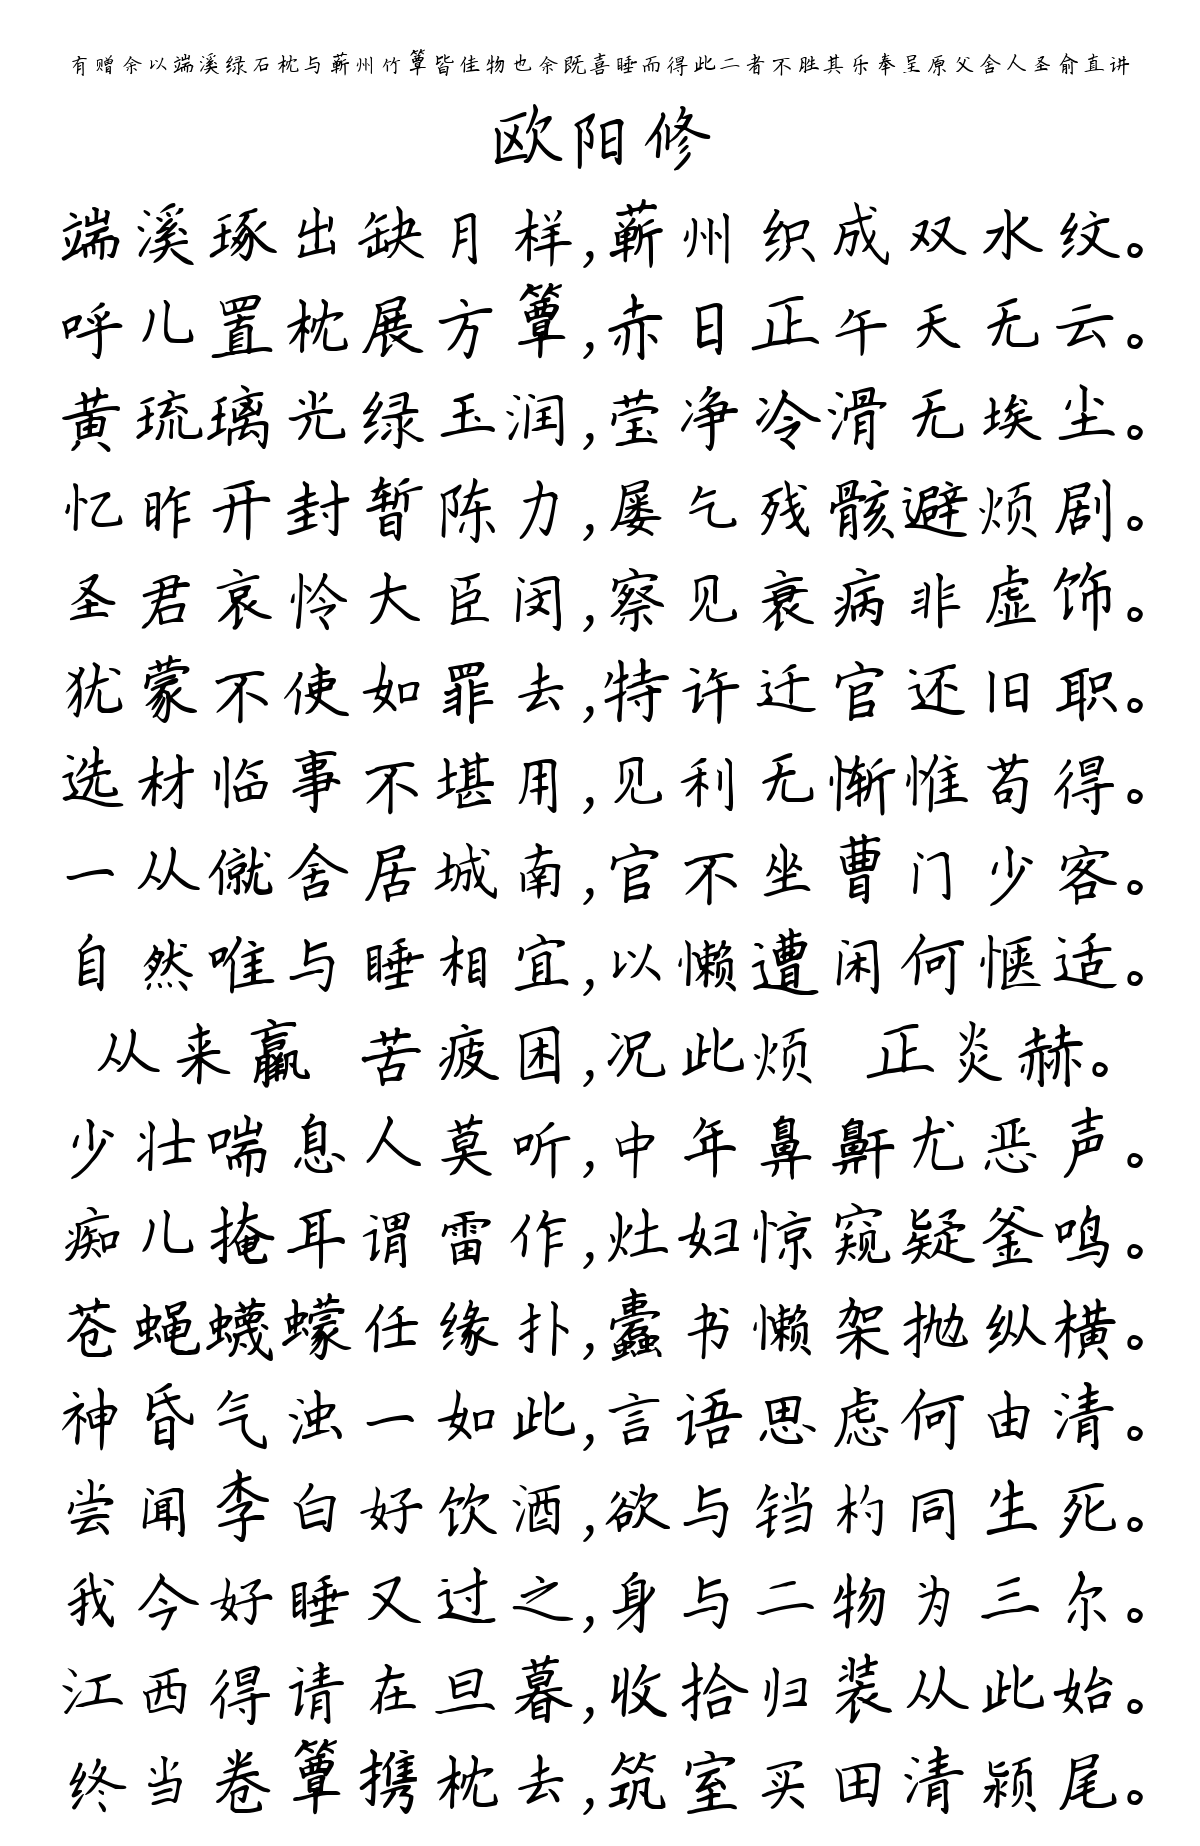 有赠余以端溪绿石枕与蕲州竹簟皆佳物也余既喜睡而得此二者不胜其乐奉呈原父舍人圣俞直讲
欧阳修
端溪琢出缺月样,蕲州织成双水纹。
呼儿置枕展方簟,赤日正午天无云。
黄琉璃光绿玉润,莹净冷滑无埃尘。
忆昨开封暂陈力,屡乞残骸避烦剧。
圣君哀怜大臣闵,察见衰病非虚饰。
犹蒙不使如罪去,特许迁官还旧职。
选材临事不堪用,见利无惭惟苟得。
一从僦舍居城南,官不坐曹门少客。
自然唯与睡相宜,以懒遭闲何惬适。
从来羸 苦疲困,况此烦 正炎赫。
少壮喘息人莫听,中年鼻鼾尤恶声。
痴儿掩耳谓雷作,灶妇惊窥疑釜鸣。
苍蝇蠛蠓任缘扑,蠹书懒架抛纵横。
神昏气浊一如此,言语思虑何由清。
尝闻李白好饮酒,欲与铛杓同生死。
我今好睡又过之,身与二物为三尔。
江西得请在旦暮,收拾归装从此始。
终当卷簟携枕去,筑室买田清颍尾。